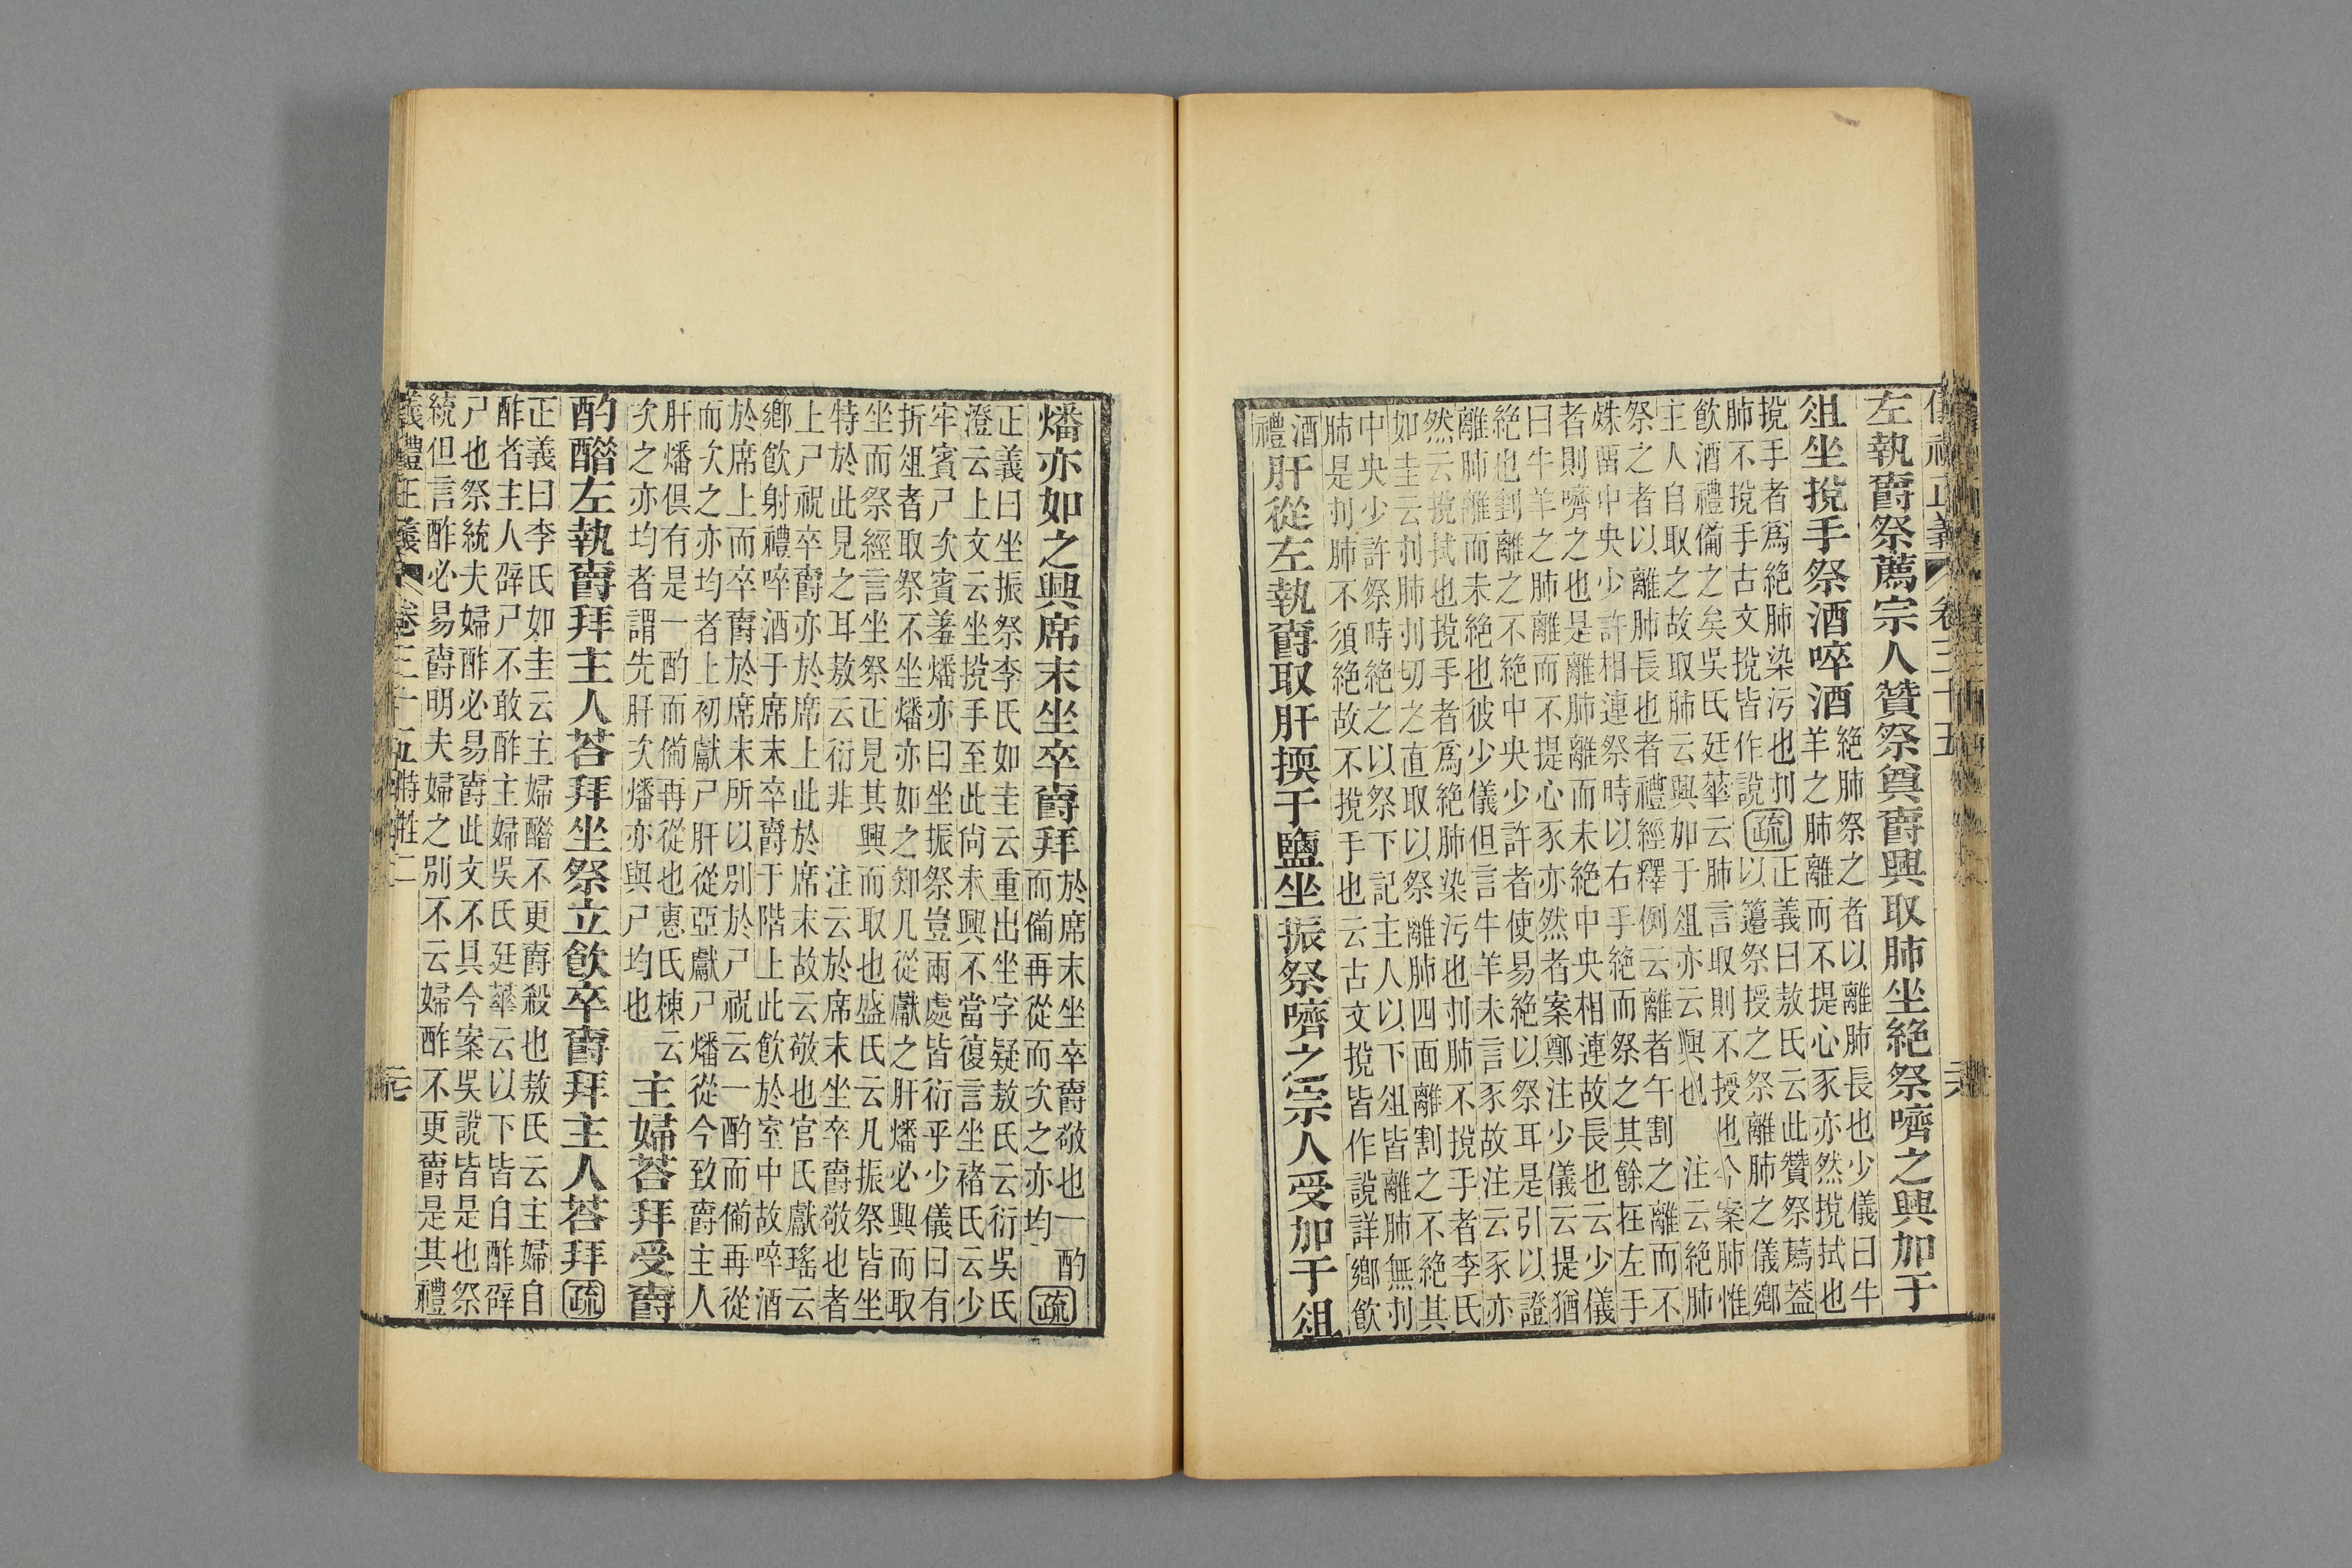 儀禮正義 卷三十五
左執爵祭薦宗人贊祭奠爵興取肺坐絕祭嚌之興加于
俎坐挩手祭酒啐酒
絕肺祭之者以離肺長也少儀曰牛
羊之肺離而不提心豕亦然挩拭也
挩手者爲絕肺染污也刌
肺不挩手古文挩皆作說
疏
正義曰敖氏云此贊祭薦蓋
以籩祭授之祭離肺之儀鄉
飲酒禮備之矣吳氏廷華云肺言取則不授也今案肺惟
主人自取之故取肺云興如于俎亦云興也 注云絕肺
祭之者以離肺長也者禮經釋例云離者午割之離而不
殊留中央少許相連祭時以右手絕而祭之其餘在左手
者則嚌之也是離肺離而未絕中央相連故長也云少儀
曰牛羊之肺離而不提心豕亦然者案鄭注少儀云提猶
絕也劃離之不絕中央少許者使易絕以祭耳是引以證
離肺離而未絕也彼少儀但言牛羊未言豕故注云豕亦
然云挩拭也挩手者爲絕肺染污也刌肺不挩手者李氏
如圭云刌肺刌切之直取以祭離肺四面離割之不絕其
中央少許祭時絕之以祭下記主人以下俎皆離肺無刌
肺是刌肺不須絕故不挩手也云古文挩皆作說詳鄉飲
酒
禮
肝從左執爵取肝擩于鹽坐振祭嚌之宗人受加于俎
燔亦如之興席末坐卒爵拜
於席末坐卒爵敬也一酌
而備再從而次之亦均
疏
正義曰坐振祭李氏如圭云重出坐字疑敖氏云衍吳氏
澄云上文云坐挩手至此尚未興不當復言坐褚氏云少
牢賓尸次賓羞燔亦曰坐振祭豈兩處皆衍乎少儀曰有
折俎者取祭不坐燔亦如之知凡從獻之肝燔必興而取
坐而祭經言坐祭正見其興而取也盛氏云凡振祭皆坐
特於此見之耳敖云衍非 注云於席末坐卒爵敬也者
上尸祝卒爵亦於席上此於席末故云敬也官氏獻瑤云
鄉飲射禮啐酒于席末卒爵于階上此飲於室中故啐酒
於席上而卒爵於席末所以別於尸祝云一酌而備再從
而次之亦均者上初獻尸肝從亞獻尸燔從今致爵主人
肝燔俱有是一酌而備再從也惠氏棟云
次之亦均者謂先肝次燔亦與尸均也
主婦荅拜受爵
酌醋左執爵拜主人荅拜坐祭立飲卒爵拜主人荅拜
疏
正義曰李氏如圭云主婦醋不更爵殺也敖氏云主婦自
酢者主人辟尸不敢酢主婦吳氏廷華云以下皆自酢辟
尸也祭統夫婦酢必易爵此文不具今案吳說皆是也祭
統但言酢必易爵明夫婦之別不云婦酢不更爵是其禮
儀禮正義 卷三十五 特牲二